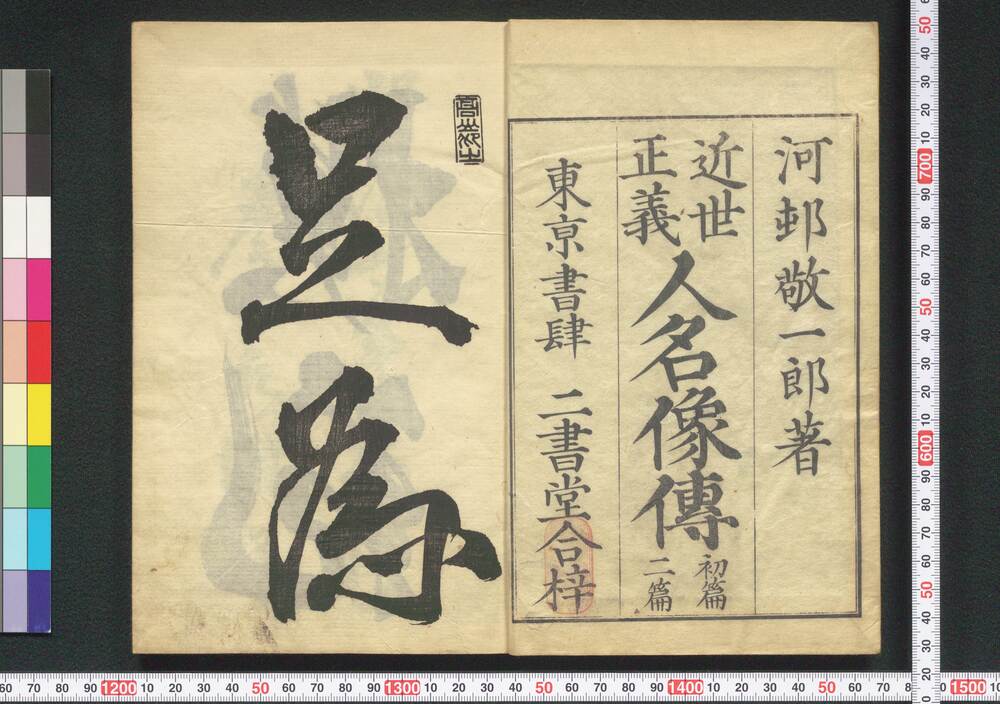 河邨敬一郎著
近世
正義
人名像傳
初篇
二篇
東京書肆 二書堂合梓
足為
60 70 80 90 1200 10 20 30 40 50 60 70 80 90 1300 10 20 30 40 50 60 70 80 90 1400 10 20 30 40 50 60 70 80 1500
50 40 30 20 10 700 90 80 70 60 50 40 30 20 10 600 90 80 70 60 50 40 30 20